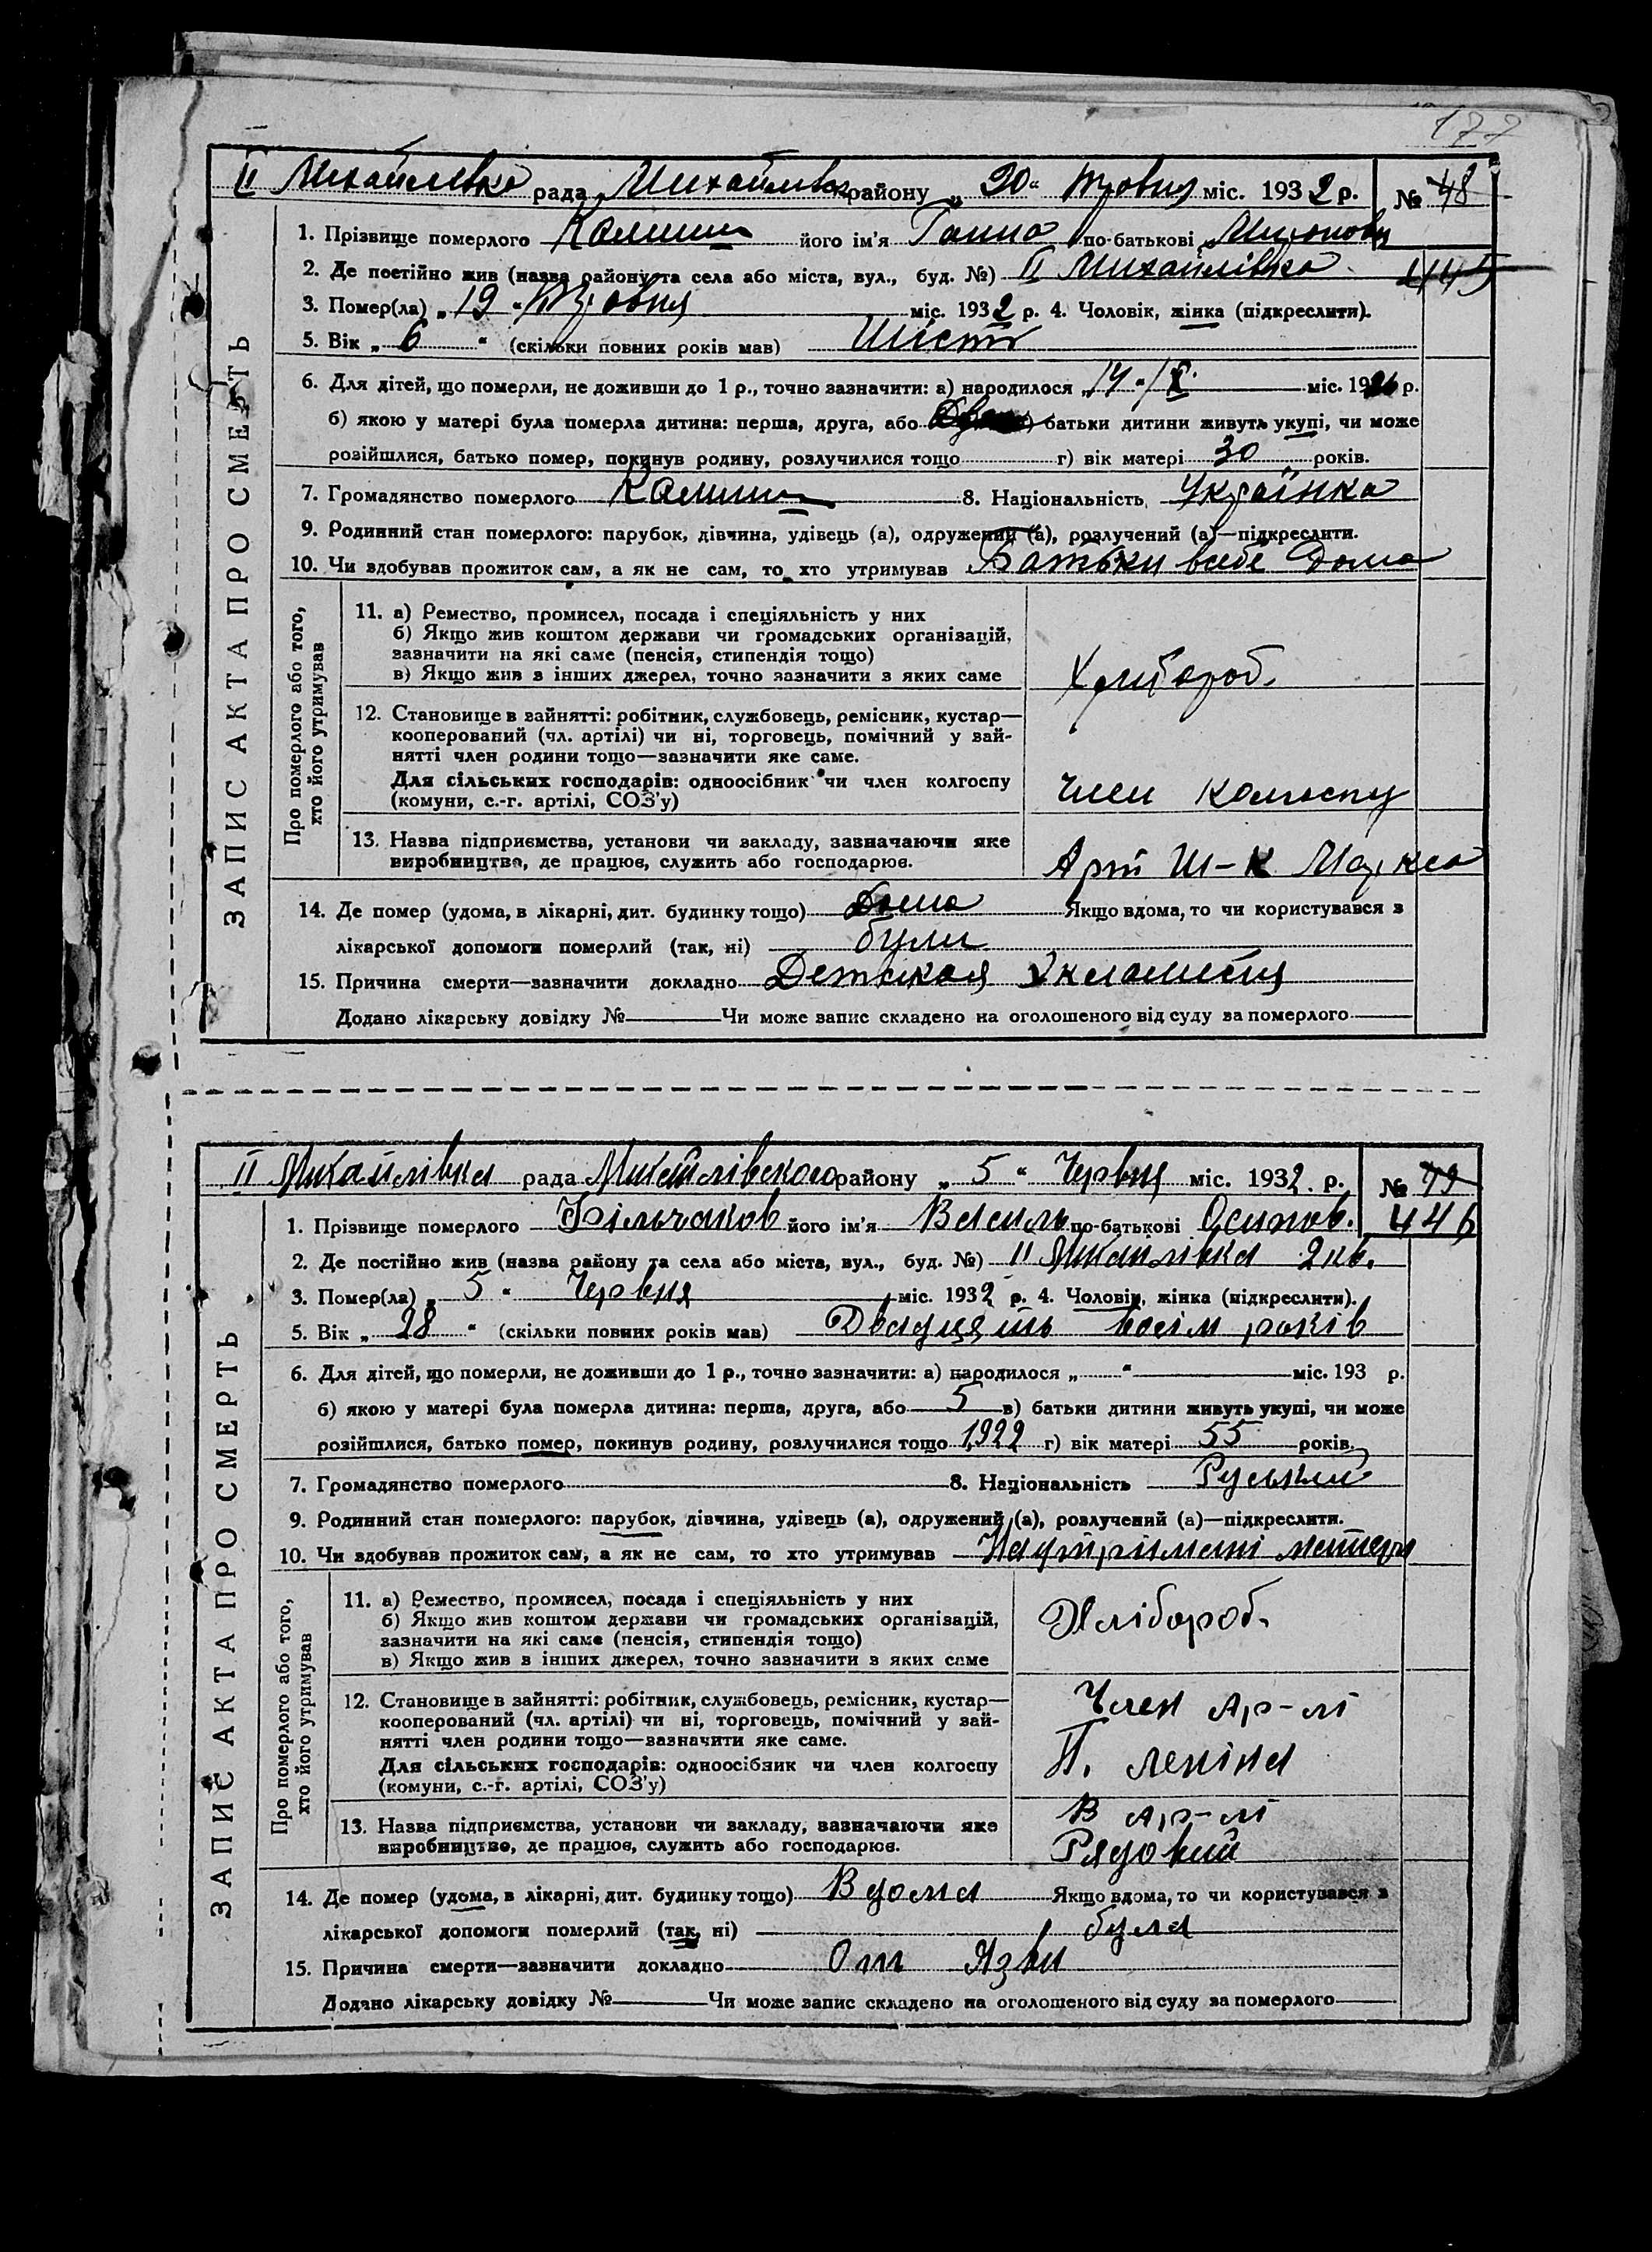 177
II Михайлівка рада Михайлівськ району „ 20 “ Травня міс. 1932 р. № 48
1. Прізвище померлого його ім'я Ганна по-батькові
445
2. Де постійно жив (назва району та села або міста, вул., буд. №) II Михайлівка
3. Помер(ла) „ 19 “ Травня міс. 1932 р. 4. Чоловік, жінка (підкреслити).
5. Вік „ 6 “ (скільки повних років мав) Шість
6. Для дітей, що померли, не доживши до 1 р., точно зазначити: а) народилося „ 14 “ IX. міс. 1926 р.
б) якою у матері була померла дитина: перша, друга, або батьки дитини живуть укупі, чи може
розійшлися, батько помер, покинув родину, розлучилися тощо г) вік матері 30 років.
7. Громадянство померлого 8. Національність Українка
9. Родинний стан померлого: парубок, дівчина, удівець (а), одружений (а), розлучений (а)—підкреслити.
10. Чи здобував прожиток сам, а як не сам, то хто утримував Батьки в себе Дома
ЗАПИС АКТА ПРО СМЕРТЬ
Про померлого або того, хто його утримував
11. а) Ремество, промисел, посада і спеціяльність у них
б) Якщо жив коштом держави чи громадських організацій,
зазначити на які саме (пенсія, стипендія тощо)
в) Якщо жив з інших джерел, точно зазначити з яких саме
Хлібороб.
12. Становище в зайнятті: робітник, службовець, ремісник, кустар—
кооперований (чл. артілі) чи ні, торговець, помічний у зай-
нятті член родини тощо—зазначити яке саме.
Для сільських господарів: одноосібник чи член колгоспу
(комуни, с.-г. артілі, СОЗ'у)
член колгоспу
13. Назва підприємства, установи чи закладу, зазначаючи яке
виробництво, де працює, служить або господарює.
Арт Ш-К Маркса
14. Де помер (удома, в лікарні, дит. будинку тощо) Дома Якщо вдома, то чи користувався з
лікарської допомоги померлий (так, ні) були
15. Причина смерти—зазначити докладно Детская
Додано лікарську довідку № Чи може запис складено на оголошеного від суду за померлого
II Михайлівка рада Михайлівського району „ 5 “ Червня міс. 1932 р. № 49
446
1. Прізвище померлого Фільчаков його ім'я Василь по-батькові Осипов.
2. Де постійно жив (назва району та села або міста, вул., буд. №) II Михайлівка 2 кв.
3. Помер(ла) „ 5 “ Червня міс. 1932 р. 4. Чоловік, жінка (підкреслити).
5. Вік „ 28 “ (скільки повних років мав) Двадцять восім років
6. Для дітей, що померли, не доживши до 1 р., точно зазначити: а) народилося „ “ міс. 193 р.
б) якою у матері була померла дитина: перша, друга, або 5 в) батьки дитини живуть укупі, чи може
розійшлися, батько помер, покинув родину, розлучилися тощо 1922 г) вік матері 55 років.
7. Громадянство померлого 8. Національність Руський
9. Родинний стан померлого: парубок, дівчина, удівець (а), одружений (а), розлучений (а)—підкреслити.
10. Чи здобував прожиток сам, а як не сам, то хто утримував На утрімані матери
ЗАПИС АКТА ПРО СМЕРТЬ
Про померлого або того, хто його утримував
11. а) Ремество, промисел, посада і спеціяльність у них
б) Якщо жив коштом держави чи громадських організацій,
зазначити на які саме (пенсія, стипендія тощо)
в) Якщо жив з інших джерел, точно зазначити з яких саме
Хлібороб.
12. Становище в зайнятті: робітник, службовець, ремісник, кустар—
кооперований (чл. артілі) чи ні, торговець, помічний у зай-
нятті член родини тощо—зазначити яке саме.
Для сільських господарів: одноосібник чи член колгоспу
(комуни, с.-г. артілі, СОЗ'у)
Член Ар-лі
П. Леніна
13. Назва підприємства, установи чи закладу, зазначаючи яке
виробництво, де працює, служить або господарює.
В Ар-лі
Рядовий
14. Де помер (удома, в лікарні, дит. будинку тощо) Вдома Якщо вдома, то чи користувався з
лікарської допомоги померлий (так, ні) була
15. Причина смерти—зазначити докладно От Язви
Додано лікарську довідку № Чи може запис складено на оголошеного від суду за померлого